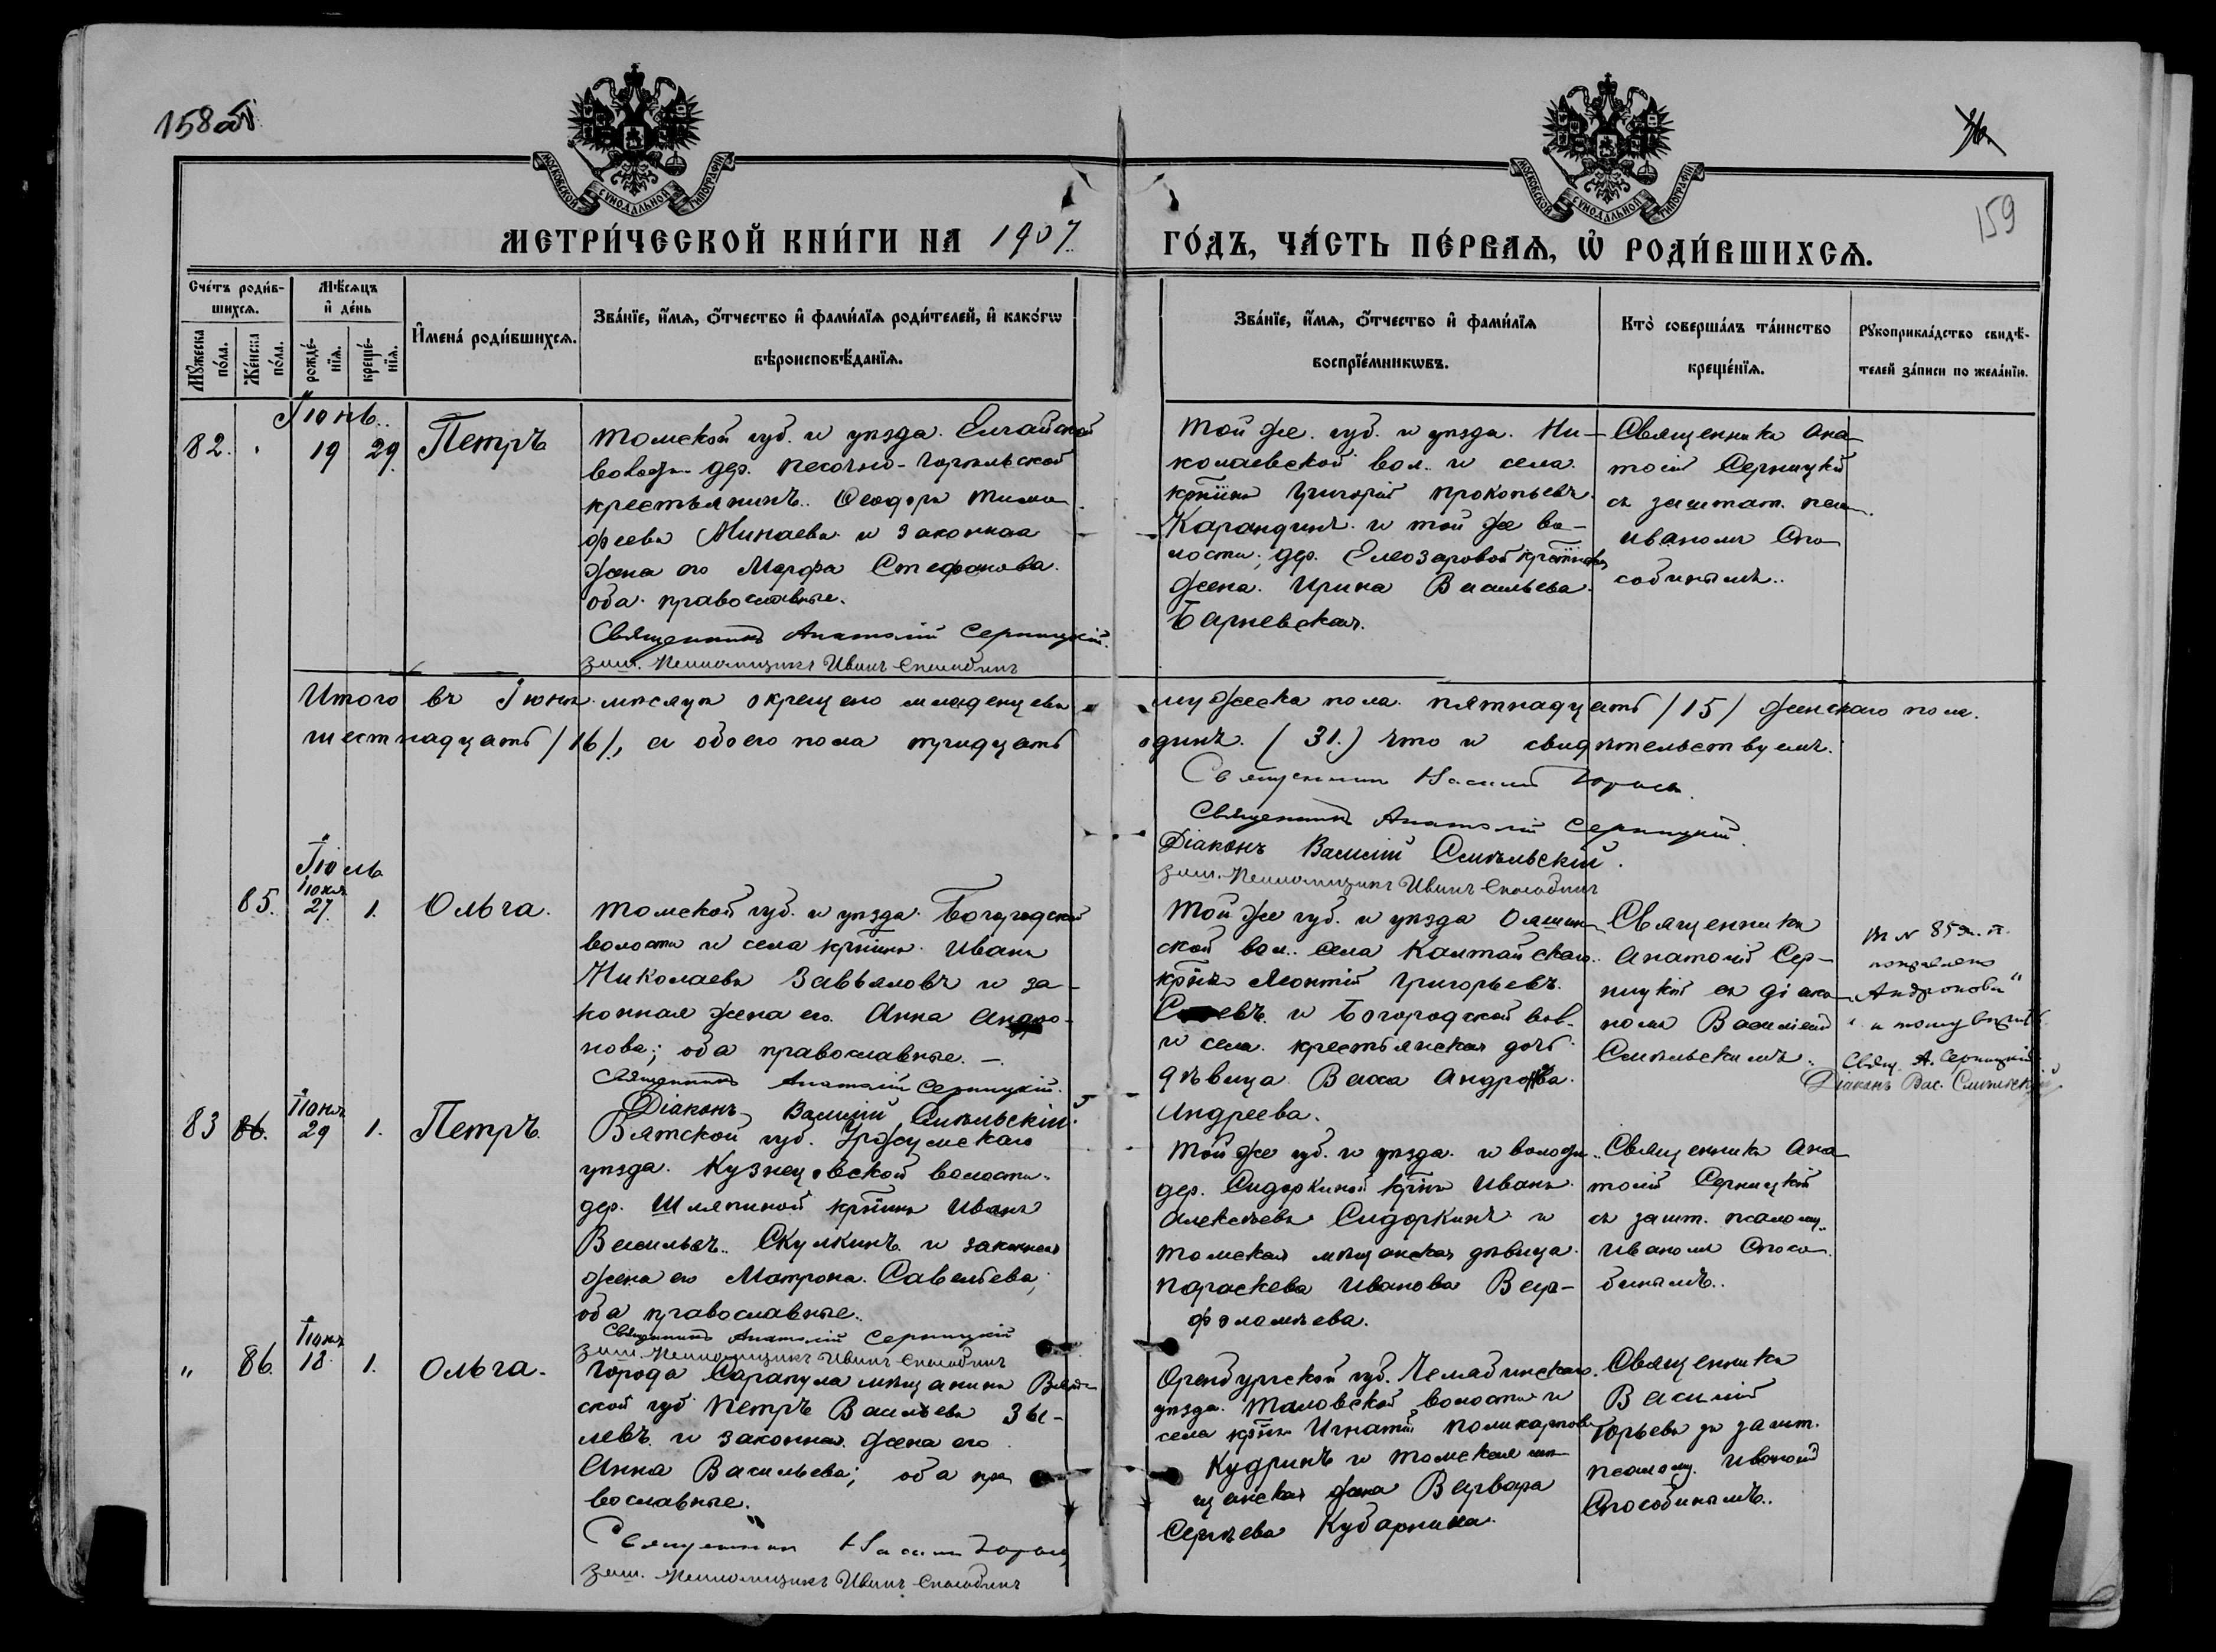 158 об
159
МОСКОВСКОЙ СѴНОДАЛЬНОЙ ТИПОГРАФІИ
МОСКОВСКОЙ СѴНОДАЛЬНОЙ ТИПОГРАФІИ
МЕТРИ́ЧЕСКОЙ КНИ́ГИ НА 1907
ГО́ДЪ, ЧА́СТЬ ПЕ́РВАѦ, Ѡ҆ РОДИ́ВШИХСѦ.
Сче́тъ роди́в-
шихсѧ.
Мꙋ́жеска по́ла.
Же́нска по́ла.
Мѣ́сѧцъ
и҆ де́нь
рожде́-
нїѧ.
креще́-
нїѧ.
И҆мена̀ роди́вшихсѧ.
Зва́нїе, и҆́мѧ, ѻ҆́тчество и҆ фами́лїѧ роди́телей, и҆ како́гѡ
вѣроисповѣ́данїѧ.
Зва́нїе, и҆́мѧ, ѻ҆́тчество и҆ фами́лїѧ
воспрїе́мникѡвъ.
Кто̀ соверша́лъ та́инство
креще́нїѧ.
Рꙋкоприкла́дство свидѣ́-
телей за́писи по жела́нїю.
Іюнь.
82.
19
29
Петръ
Томской губ. и уѣзда. Елгайской
волости дер. Песочно-Горѣльской
крестьянинъ Ѳеодоръ Тимо
ѳеевъ Минаевъ и законная
жена его Марѳа Стефанова.
оба православные.
Священникъ Анатолій Серницкій.
заш. Псаломщикъ Иванъ Способинъ
Той же губ. и уѣзда. Ни-
колаевской вол. и села
крнъ Григорій Прокопьевъ
Карандинъ и той же во-
лости, дер. Елеозаровой
жена Ирина Васильева
Барневская.
Священникъ Ана-
толій Серницкій
съ заштат. псал.
Иваномъ Спо
собинымъ.
Итого въ Іюнѣ мѣсяцѣ окрещено младенцевъ
мужеска пола пятнадцать /15/ женскаго пола
шестнадцать /16/, а обоего пола тридцать
одинъ. (31.) что и свидѣтельствуемъ.
Священникъ Василій Юрьевъ
Священникъ Анатолій Серницкій.
Діаконъ Василій Смѣльскій.
заш. Псаломщикъ Иванъ Способинъ
Іюль
85.
Іюня
27.
1.
Ольга.
Томской губ. и уѣзда Богородской
волости и села крнъ Иванъ
Николаевъ Завьяловъ и за-
конная жена его Анна Андро-
нова; оба православные. —
Священникъ Анатолій Серницкій.
Діаконъ Василій Смѣльскій.
Той же губ. и уѣзда
ской вол. села Калтайскаго
крнъ Леонтій Григорьевъ
и Богородской вол.
и села крестьянская дочь
дѣвица Васса
Андреева.
Священникъ
Анатолій Сер-
ницкій съ діако-
номъ Василіемъ
Смѣльскимъ.
Въ № 85 ж. п.
поправлено
"Андронова"
Свящ. А. Серницкій
Діаконъ Вас. Смѣльскій
83
86.
Іюня
29
1.
Петръ.
Вятской губ. Уржумскаго
уѣзда. Кузнецовской волости.
дер. Шляпиной крнъ Иванъ
Васильевъ Скулкинъ и законная
жена его Матрона Савельева;
оба православные.
Священникъ Анатолій Серницкій
заш. Псаломщикъ Иванъ Способинъ
Той же губ. и уѣзда и волости
дер. Сидоркиной крнъ Иванъ
Алексѣевъ Сидоркинъ и
Томская мѣщанская дѣвица
Параскева Иванова Вар-
фоломѣева.
Священникъ Ана-
толій Серницкій
съ зашт. псаломщ.
Иваномъ Способ
бинымъ.
"
86.
Іюня
18.
1.
Ольга.
Города Сарапула мѣщанинъ Вят-
ской губ Петръ Васильевъ Зы-
левъ и законная жена его
Анна Васильева; оба пра
вославные.
Священникъ Василій Юрьевъ
заш. Псаломщикъ Иванъ Способинъ
Оренбургской губ. Челябинскаго
уѣзда. Таловской волости и
села крнъ Игнатій Поликарповъ
Кудринъ и Томская мѣ-
щанская жена Варвара
Сергѣева Кубаркина.
Священникъ
Василій
Юрьевъ съ зашт.
псаломщ. Иваномъ
Способинымъ.